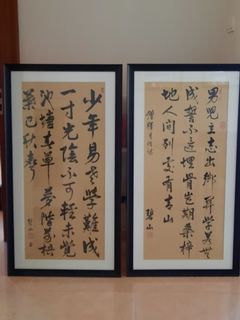 男児立志出鄉關學若無
成誓不還埋骨豈期桑梓
地人間到處有青山
僧釋月性詩
碧山
少年易老學難成
一寸光陰不可輕未覺
池塘春草夢階前梧
葉已秋聲
碧山